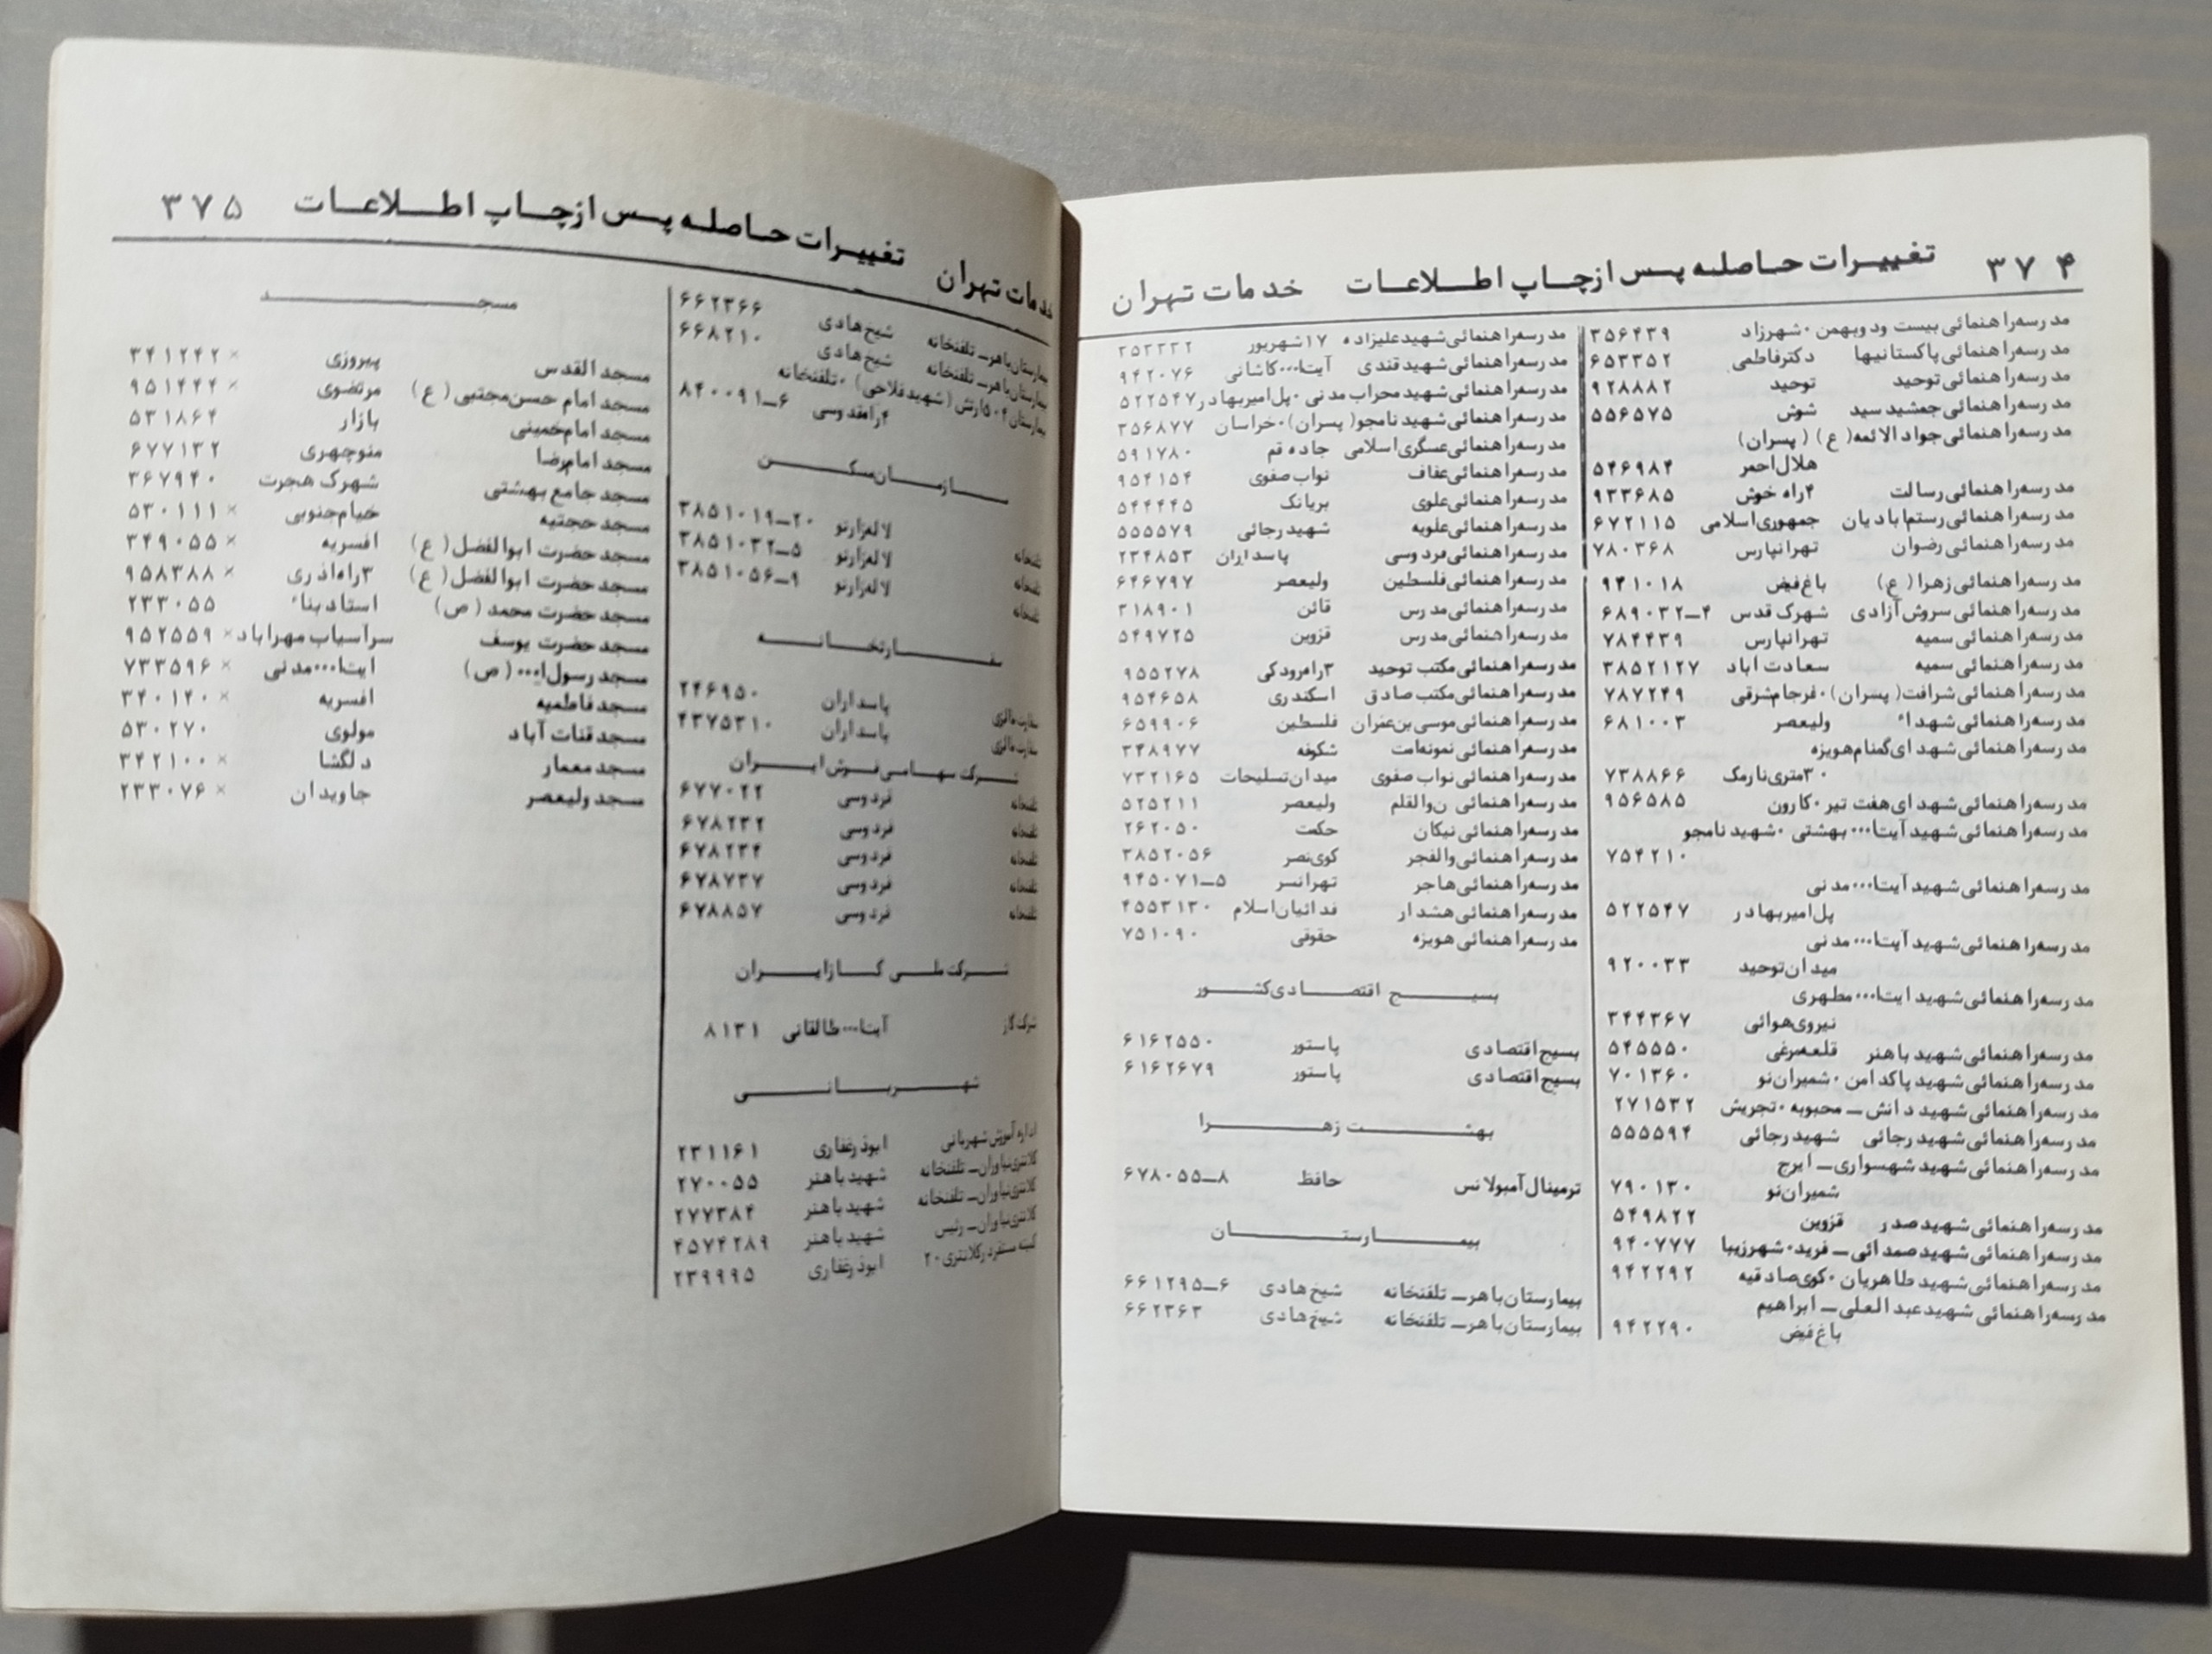 ۳۷۴ تغییرات حاصله پس ازچاپ اطلاعات خدمات تهران
مدرسه‌راهنمائی بیست ودوبهمن ۰شهرزاد ۳۵۶۴۳۹
مدرسه‌راهنمائی پاکستانیها دکترفاطمی ۶۵۳۳۵۲
مدرسه‌راهنمائی توحید توحید ۹۲۸۸۸۲
مدرسه‌راهنمائی جمشید سید شوش ۵۵۶۵۷۵
مدرسه‌راهنمائی جوادالائمه(ع) (پسران)
هلال‌احمر ۵۴۶۹۸۴
مدرسه‌راهنمائی رسالت ۴راه خوش ۹۳۳۶۸۵
مدرسه‌راهنمائی رستم‌ابادیان جمهوری‌اسلامی ۶۷۲۱۱۵
مدرسه‌راهنمائی رضوان تهرانپارس ۷۸۰۳۶۸
مدرسه‌راهنمائی زهرا (ع) باغ‌فیض ۹۴۱۰۱۸
مدرسه‌راهنمائی سروش‌آزادی شهرک قدس ۴ــ۶۸۹۰۳۲
مدرسه‌راهنمائی سمیه تهرانپارس ۷۸۴۴۳۹
مدرسه‌راهنمائی سمیه سعادت اباد ۳۸۵۲۱۲۷
مدرسه‌راهنمائی شرافت(پسران)۰فرجام‌شرقی ۷۸۷۲۴۹
مدرسه‌راهنمائی شهداء ولیعصر ۶۸۱۰۰۳
مدرسه‌راهنمائی شهدای‌گمنام‌هویزه
۳۰متری‌نارمک ۷۳۸۸۶۶
مدرسه‌راهنمائی شهدای‌هفت تیر۰کارون ۹۵۶۵۸۵
مدرسه‌راهنمائی شهید آیت‌ا۰۰۰ بهشتی ۰شهید نامجو
۷۵۴۲۱۰
مدرسه‌راهنمائی شهید آیت‌ا۰۰۰مدنی
پل‌امیربهادر ۵۲۲۵۴۷
مدرسه‌راهنمائی شهید آیت‌ا۰۰۰مدنی
میدان‌توحید ۹۲۰۰۳۳
مدرسه‌راهنمائی شهید ایت‌ا۰۰۰مطهری
نیروی‌هوائی ۳۴۴۳۶۷
مدرسه‌راهنمائی شهید باهنر قلعه‌مرغی ۵۴۵۵۵۰
مدرسه‌راهنمائی شهید پاکدامن ۰شمیران‌نو ۷۰۱۳۶۰
مدرسه‌راهنمائی شهید دانش ــ محبوبه ۰تجریش ۲۷۱۵۳۲
مدرسه‌راهنمائی شهید رجائی شهید رجائی ۵۵۵۵۹۴
مدرسه‌راهنمائی شهید شهسواری ــ ایرج
شمیران‌نو ۷۹۰۱۳۰
مدرسه‌راهنمائی شهید صدر قزوین ۵۴۹۸۲۲
مدرسه‌راهنمائی شهید صمدائی ــ فرید۰شهرزیبا ۹۴۰۷۷۷
مدرسه‌راهنمائی شهید طاهریان ۰کوی‌صادقیه ۹۴۲۲۹۲
مدرسه‌راهنمائی شهید عبدالعلی ــ ابراهیم
باغ‌فیض ۹۴۲۲۹۰
مدرسه‌راهنمائی شهید علیزاده ۱۷شهریور ۳۵۳۳۳۲
مدرسه‌راهنمائی شهید قندی آیت‌ا۰۰۰کاشانی ۹۴۲۰۷۶
مدرسه‌راهنمائی شهید محراب مدنی ۰پل‌امیربهادر ۵۲۲۵۴۷
مدرسه‌راهنمائی شهید نامجو(پسران)۰خراسان ۳۵۶۸۷۷
مدرسه‌راهنمائی عسگری‌اسلامی جاده قم ۵۹۱۷۸۰
مدرسه‌راهنمائی عفاف نواب صفوی ۹۵۴۱۵۴
مدرسه‌راهنمائی علوی بریانک ۵۴۴۴۴۵
مدرسه‌راهنمائی علویه شهید رجائی ۵۵۵۵۷۹
مدرسه‌راهنمائی فردوسی پاسداران ۲۳۴۸۵۳
مدرسه‌راهنمائی فلسطین ولیعصر ۶۴۶۷۹۷
مدرسه‌راهنمائی مدرس قائن ۳۱۸۹۰۱
مدرسه‌راهنمائی مدرس قزوین ۵۴۹۷۲۵
مدرسه‌راهنمائی مکتب توحید ۳راه‌رودکی ۹۵۵۲۷۸
مدرسه‌راهنمائی مکتب صادق اسکندری ۹۵۴۶۵۸
مدرسه‌راهنمائی موسی بن‌عمران فلسطین ۶۵۹۹۰۶
مدرسه‌راهنمائی نمونه‌امت شکوفه ۳۴۸۹۷۷
مدرسه‌راهنمائی نواب صفوی میدان‌تسلیحات ۷۳۲۱۶۵
مدرسه‌راهنمائی ن‌والقلم ولیعصر ۵۲۵۲۱۱
مدرسه‌راهنمائی نیکان حکمت ۲۶۲۰۵۰
مدرسه‌راهنمائی والفجر کوی‌نصر ۳۸۵۲۰۵۶
مدرسه‌راهنمائی هاجر تهرانسر ۵ــ۹۴۵۰۷۱
مدرسه‌راهنمائی هشدار فدائیان‌اسلام ۴۵۵۳۱۳۰
مدرسه‌راهنمائی هویزه حقوقی ۷۵۱۰۹۰
بسیج اقتصادی‌کشور
بسیج‌اقتصادی پاستور ۶۱۶۲۵۵۰
بسیج‌اقتصادی پاستور ۶۱۶۲۶۷۹
بهشت زهرا
ترمینال‌آمبولانس حافظ ۸ــ۶۷۸۰۵۵
بیمارستان
بیمارستان‌باهر ــ تلفنخانه شیخ‌هادی ۶ــ۶۶۱۲۹۵
بیمارستان‌باهر ــ تلفنخانه شیخ‌هادی ۶۶۲۳۶۳
خدمات تهران تغییرات حاصله پس ازچاپ اطلاعات ۳۷۵
بیمارستان‌باهر ــ تلفنخانه شیخ‌هادی ۶۶۲۳۶۶
بیمارستان‌باهر ــ تلفنخانه شیخ‌هادی ۶۶۸۲۱۰
بیمارستان ۵۰۴ارتش (شهید فلاحی) ۰تلفنخانه
۶ــ۸۴۰۰۹۱
سازمان‌مسکن
تلفنخانه لاله‌زارنو ۲۰ــ۳۸۵۱۰۱۹
تلفنخانه لاله‌زارنو ۵ــ۳۸۵۱۰۳۲
تلفنخانه لاله‌زارنو ۹ــ۳۸۵۱۰۵۶
سفارتخانه
سفارت مالزی پاسداران ۲۴۶۹۵۰
سفارت مالزی پاسداران ۴۳۷۵۳۱۰
شرکت سهامی فرش ایران
تلفنخانه فردوسی ۶۷۷۰۲۲
تلفنخانه فردوسی ۶۷۸۲۳۲
تلفنخانه فردوسی ۶۷۸۲۳۴
تلفنخانه فردوسی ۶۷۸۷۳۷
تلفنخانه فردوسی ۶۷۸۸۵۷
شرکت ملی گازایران
شرکت گاز آیت‌ا۰۰۰طالقانی ۸۱۳۱
شهربانی
اداره آموزش شهربانی ابوذرغفاری ۲۳۱۱۶۱
کلانتری‌نیاوران ــ تلفنخانه شهید باهنر ۲۷۰۰۵۵
کلانتری‌نیاوران ــ تلفنخانه شهید باهنر ۲۷۷۳۸۴
کلانتری‌نیاوران ــ رئیس شهید باهنر ۴۵۷۴۲۸۹
کمیته مستقردرکلانتری۲۰ ابوذرغفاری ۲۳۹۹۹۵
مسجد
مسجد القدس پیروزی × ۳۴۱۲۴۲
مسجد امام حسن‌مجتبی (ع) مرتضوی × ۹۵۱۴۴۴
مسجد امام‌خمینی بازار ۵۳۱۸۶۴
مسجد امام‌رضا منوچهری ۶۷۷۱۳۲
مسجد جامع بهشتی شهرک هجرت ۳۶۷۹۴۰
مسجد حجتیه خیام‌جنوبی × ۵۳۰۱۱۱
مسجد حضرت ابوالفضل(ع) افسریه × ۳۴۹۰۵۵
مسجد حضرت ابوالفضل(ع) ۳راه‌اذری × ۹۵۸۳۸۸
مسجد حضرت محمد (ص) استاد بناء ۲۳۳۰۵۵
مسجد حضرت یوسف سرآسیاب مهراباد × ۹۵۲۵۵۹
مسجد رسول‌ا۰۰۰ (ص) ایت‌ا۰۰۰مدنی × ۷۳۳۵۹۶
مسجد فاطمیه افسریه × ۳۴۰۱۴۰
مسجد قنات آباد مولوی ۵۳۰۲۷۰
مسجد معمار دلگشا × ۳۴۲۱۰۰
مسجد ولیعصر جاویدان × ۲۳۳۰۷۶